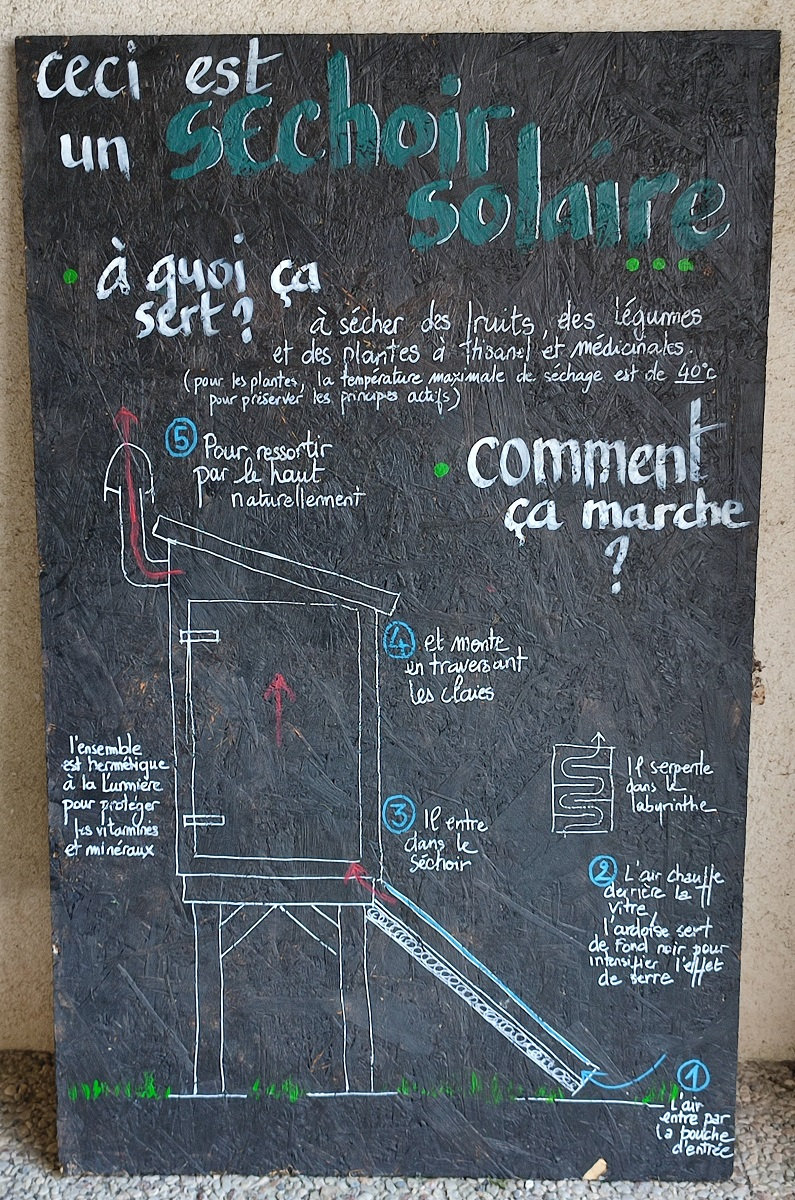 ceci est
un séchoir
solaire
...
• à quoi ça
sert ?
à sécher des fruits, des légumes
et des plantes à thisane et médicinales.
(pour les plantes, la température maximale de séchage est de 40°c
pour préserver les principes actifs)
• comment
ça marche
?
5 Pour ressortir
par le haut
naturellement
4 et monte
en traversant
les claies
l'ensemble
est hermétique
à la lumière
pour protéger
les vitamines
et minéraux
3 Il entre
dans le
séchoir
Il serpente
dans le
labyrinthe
2 L'air chauffe
derrière la
vitre,
l'ardoise sert
de fond noir pour
intensifier l'effet
de serre
1
L'air
entre par
la bouche
d'entrée